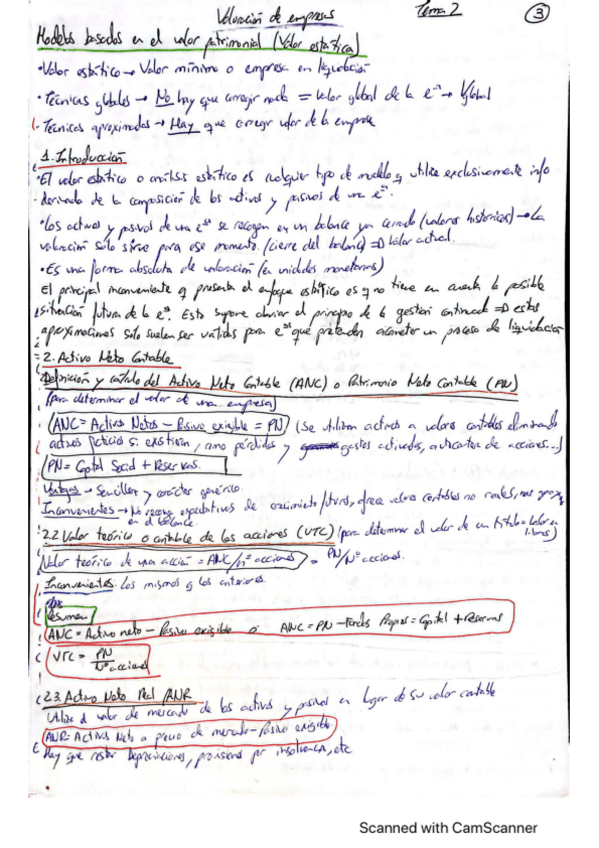 Valoración de empresas Tema 2 3
Modelos basados en el valor patrimonial (Valor estático)
• Valor estático → Valor mínimo o empresa en liquidación
• Técnicas globales → No hay que corregir nada = Valor global de la eᵃ → Vglobal
• Técnicas aproximadas → Hay que corregir valor de la empresa
1. Introducción
• El valor estático o análisis estático es cualquier tipo de modelo q utilice exclusivamente info
derivada de la composición de los activos y pasivos de una eˢᵃ.
• Los activos y pasivos de una eˢᵃ se recogen en un balance ya cerrado (valores históricos) → La
valoración solo sirve para ese momento. (cierre del balance) ⇒ Valor actual.
• Es una forma absoluta de valoración (en unidades monetarias)
El principal inconveniente q presenta el enfoque estático es q no tiene en cuenta la posible
situación futura de la eᵃ. Esto supone obviar el principio de gestión continuada ⇒ estas
aproximaciones solo suelen ser válidas para eˢᵃˢ que pretendan acometer un proceso de liquidación
2. Activo Neto Contable
Definición y cálculo del Activo Neto Contable (ANC) o Patrimonio Neto Contable (PN)
(para determinar el valor de una empresa)
ANC = Activos Netos - Pasivo exigible = PN (Se utilizan activos a valores contables eliminando
activos ficticios si existieran, como pérdidas y gastos activados, autocartera de acciones...)
PN = Capital Social + Reservas.
Ventajas → Sencillez y carácter genérico.
Inconvenientes → No recoge expectativas de crecimiento futuras, ofrece valores contables no reales,
en el balance.
2.2 Valor teórico o contable de las acciones (VTC) (para determinar el valor de un título = Valor en
libros)
Valor teórico de una acción = ANC/nº acciones = PN/Nº acciones.
Inconvenientes: los mismos q los anteriores.
Resumen
ANC = Activo neto - Pasivo exigible o ANC = PN - Fondos Propios = Capital + Reservas
VTC = PN / Nº acciones
2.3. Activo Neto Real ANR
Utiliza el valor de mercado de los activos y pasivos en lugar de su valor contable
ANR = Activos Neto a precio de mercado - Pasivo exigible
Hay que restar Depreciaciones, provisiones por insolvencia, etc
Scanned with CamScanner